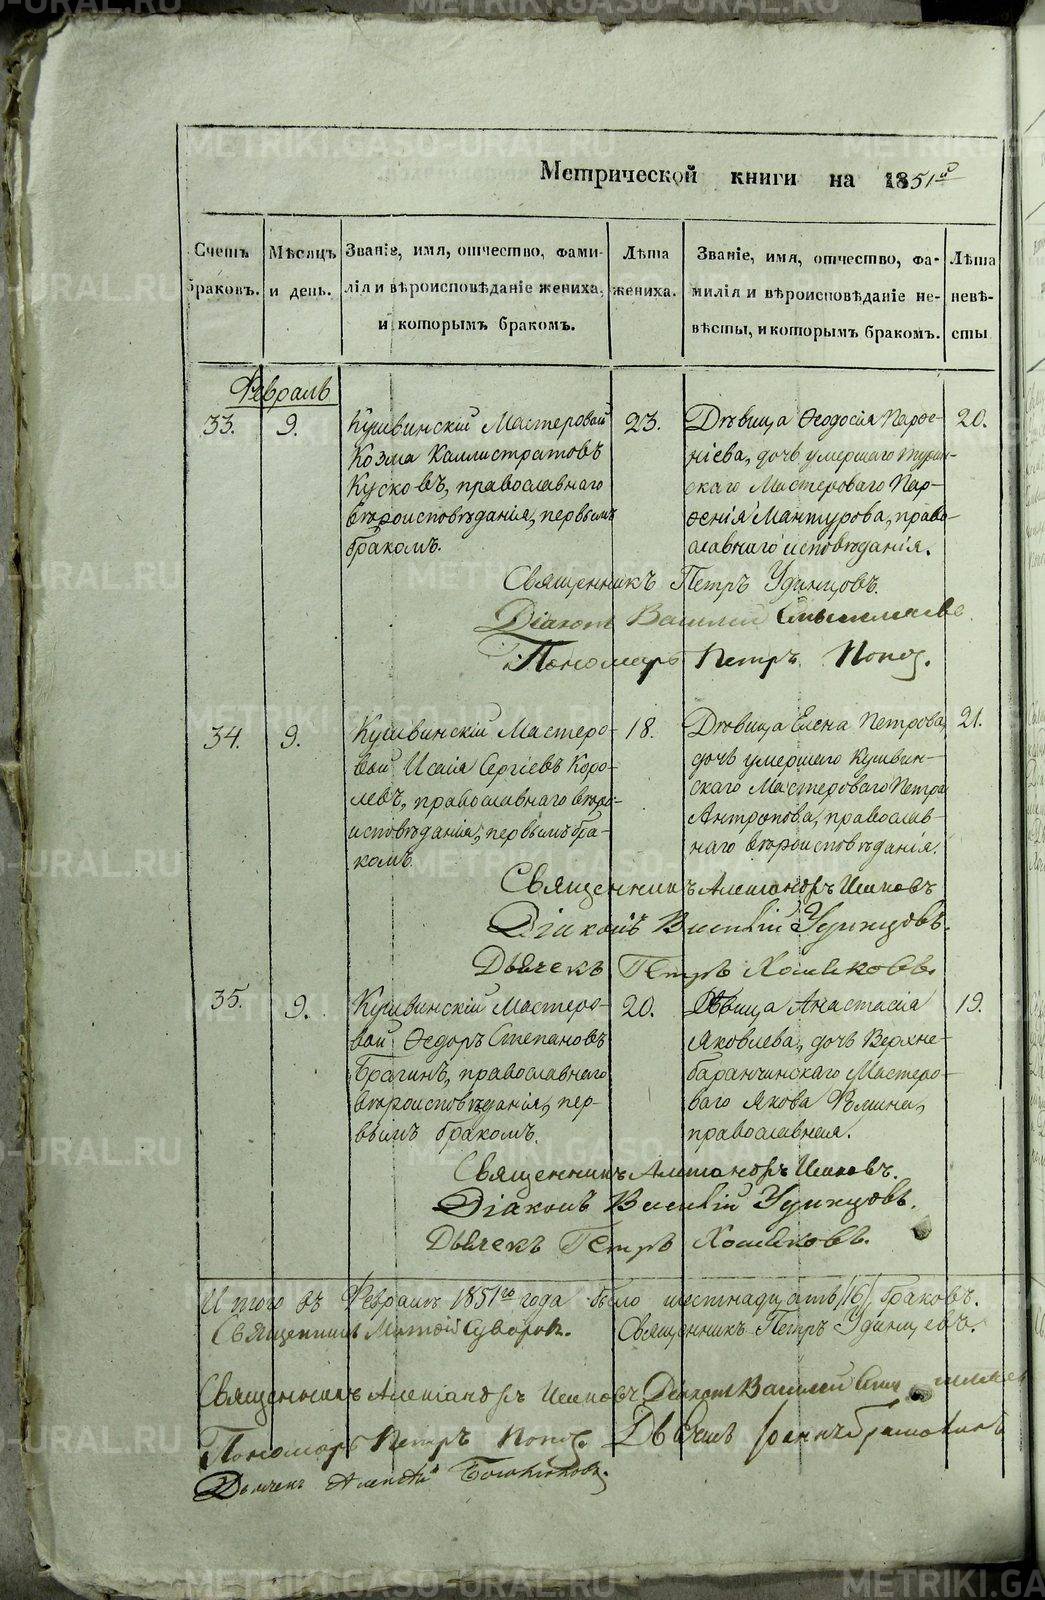 METRIKI.GASO-URAL.RU
Метрической книги на 1851й
Счетъ браковъ.
Мѣсяцъ и день.
Званіе, имя, отчество, фами-
лія и вѣроисповѣданіе жениха,
и которымъ бракомъ.
Лѣта жениха.
Званіе, имя, отчество, фа-
милія и вѣроисповѣданіе не-
вѣсты, и которымъ бракомъ.
Лѣта невѣ-
сты
Февраль
33.
9.
Кушвинскій Мастеровой
Козма Каллистратовъ
Кусковъ, православнаго
вѣроисповѣданія, первымъ
бракомъ.
23.
Дѣвица Ѳеодосія Парѳе-
ніева, дочь умершаго Турин-
скаго Мастероваго Пар-
ѳенія Мантурова, право-
славнаго исповѣданія.
20.
Священникъ Петръ Удинцовъ.
Діаконъ Василій
Пономарь Петръ Попов.
34.
9.
Кушвинскій Мастеро-
вой Исаія Сергіевъ Коро-
левъ, православнаго вѣро-
исповѣданія, первымъ бра-
комъ.
18.
Дѣвица Елена Петрова,
дочь умершаго Кушвин-
скаго Мастероваго Петра
Антропова, православ-
наго вѣроисповѣданія.
21.
Священникъ Александръ
Діаконъ Василій Удинцовъ.
Дьячекъ Петръ Хомяковъ.
35.
9.
Кушвинскій Мастеро-
вой Ѳедоръ Степановъ
Брагинъ, православнаго
вѣроисповѣданія, пер-
вымъ бракомъ.
20.
Дѣвица Анастасія
Яковлева, дочь Верхне-
баранчинскаго Мастеро-
ваго Якова Ѳомина,
православная.
19.
Священникъ Александръ
Діаконъ Василій Удинцовъ.
Дьячекъ Петръ Хомяковъ.
Итого въ Февралѣ 1851го года было шестнадцать /16/ браковъ.
Священникъ Матѳій Суворовъ. Священникъ Петръ Удинцевъ.
Священникъ Александръ Діаконъ Василій
Пономарь Петръ Попов. Дьячекъ
Дьячекъ Алексѣй